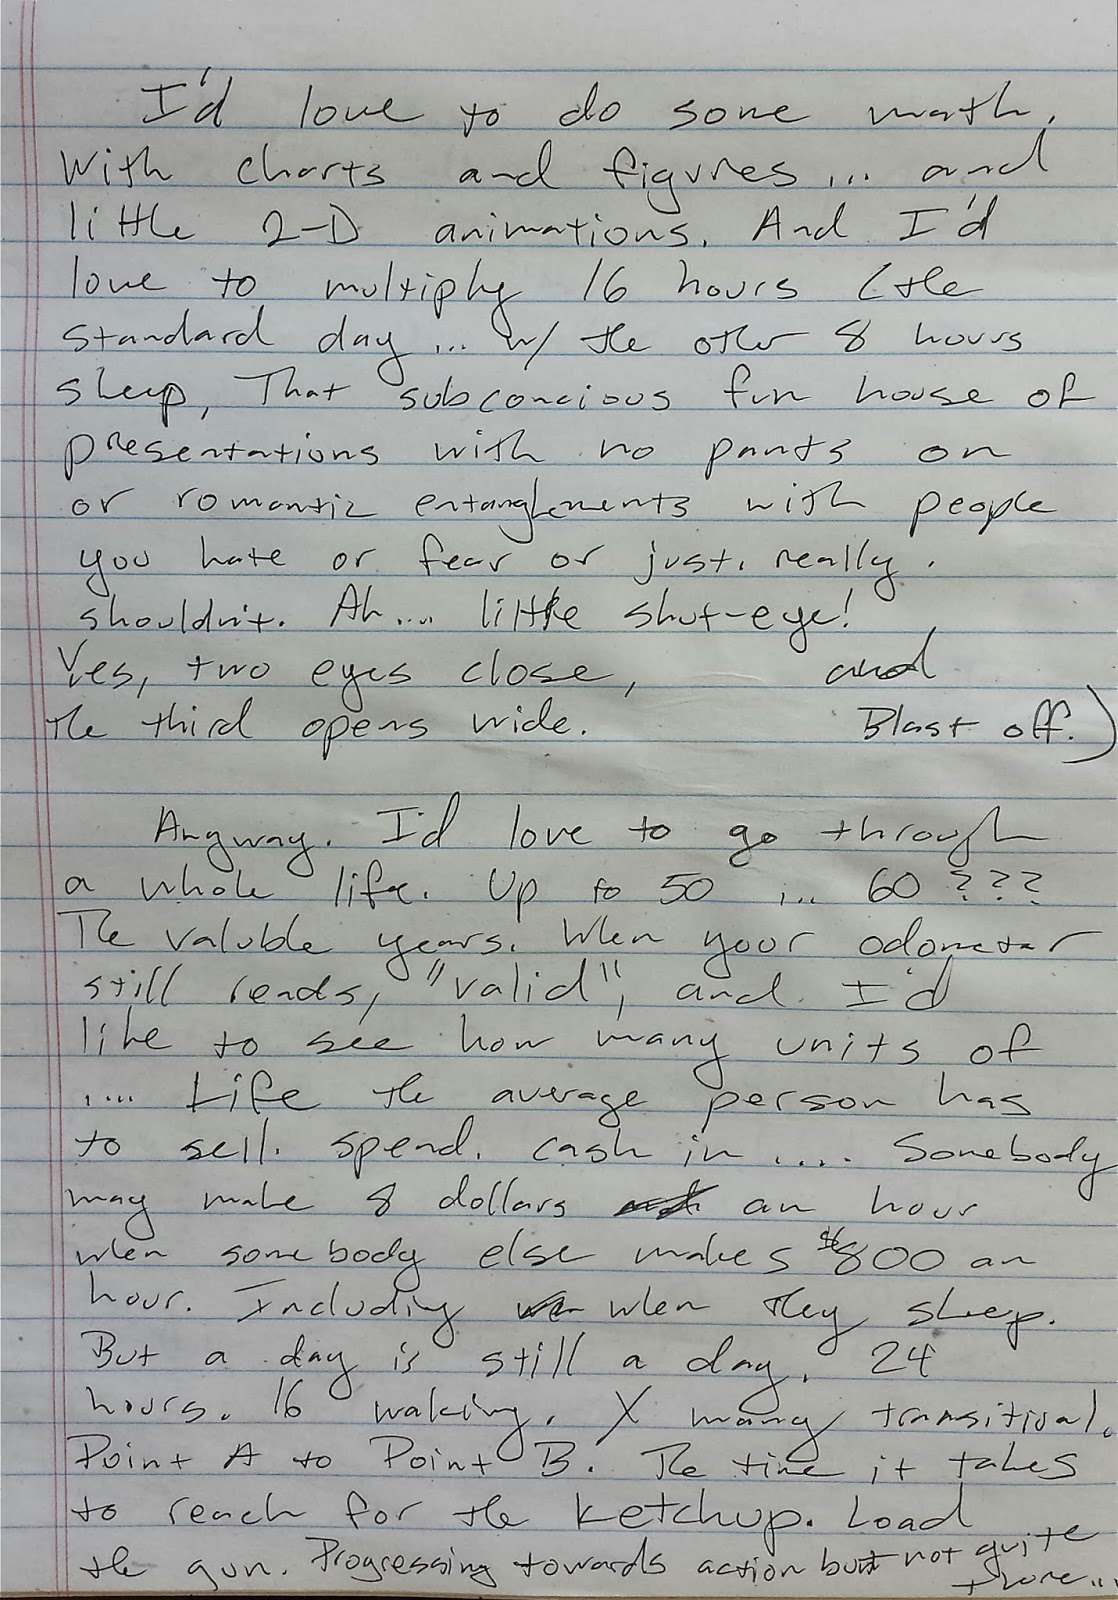 I'd love to do some math.
With charts and figures... and
little 2-D animations. And I'd
love to multiply 16 hours (the
standard day... w/ the other 8 hours
sleep, That subconcious fun house of
presentations with no pants on
or romantic entanglements with people
you hate or fear or just. really.
shouldn't. Ah.... little shut-eye!
Yes, two eyes close, and
the third opens wide. Blast off.)
Anyway. I'd love to go through
a whole life. Up to 50 ... 60???
The valuble years. When your odometer
still reads, "valid", and I'd
like to see how many units of
.... Life the average person has
to sell. spend. cash in .... Somebody
may make 8 dollars an hour
when somebody else makes $800 an
hour. Including when they sleep.
But a day is still a day. 24
hours. 16 waking. X many transitional.
Point A to Point B. The time it takes
to reach for the ketchup. Load
the gun. Progressing towards action but not quite
there...